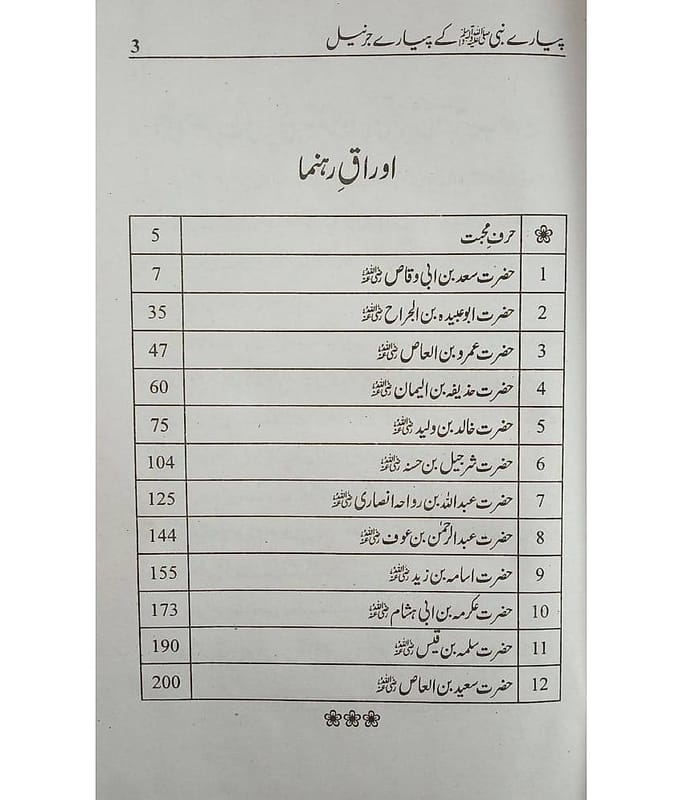 پیارے نبی ﷺ کے پیارے جرنیل 3
اوراقِ رہنما
حرفِ محبت 5
1 حضرت سعد بن ابی وقاص رضی اللہ عنہ 7
2 حضرت ابو عبیدہ بن الجراح رضی اللہ عنہ 35
3 حضرت عمرو بن العاص رضی اللہ عنہ 47
4 حضرت حذیفہ بن الیمان رضی اللہ عنہ 60
5 حضرت خالد بن ولید رضی اللہ عنہ 75
6 حضرت شرجیل بن حسنہ رضی اللہ عنہ 104
7 حضرت عبداللہ بن رواحہ انصاری رضی اللہ عنہ 125
8 حضرت عبدالرحمٰن بن عوف رضی اللہ عنہ 144
9 حضرت اسامہ بن زید رضی اللہ عنہ 155
10 حضرت عکرمہ بن ابی ہشام رضی اللہ عنہ 173
11 حضرت سلمہ بن قیس رضی اللہ عنہ 190
12 حضرت سعید بن العاص رضی اللہ عنہ 200